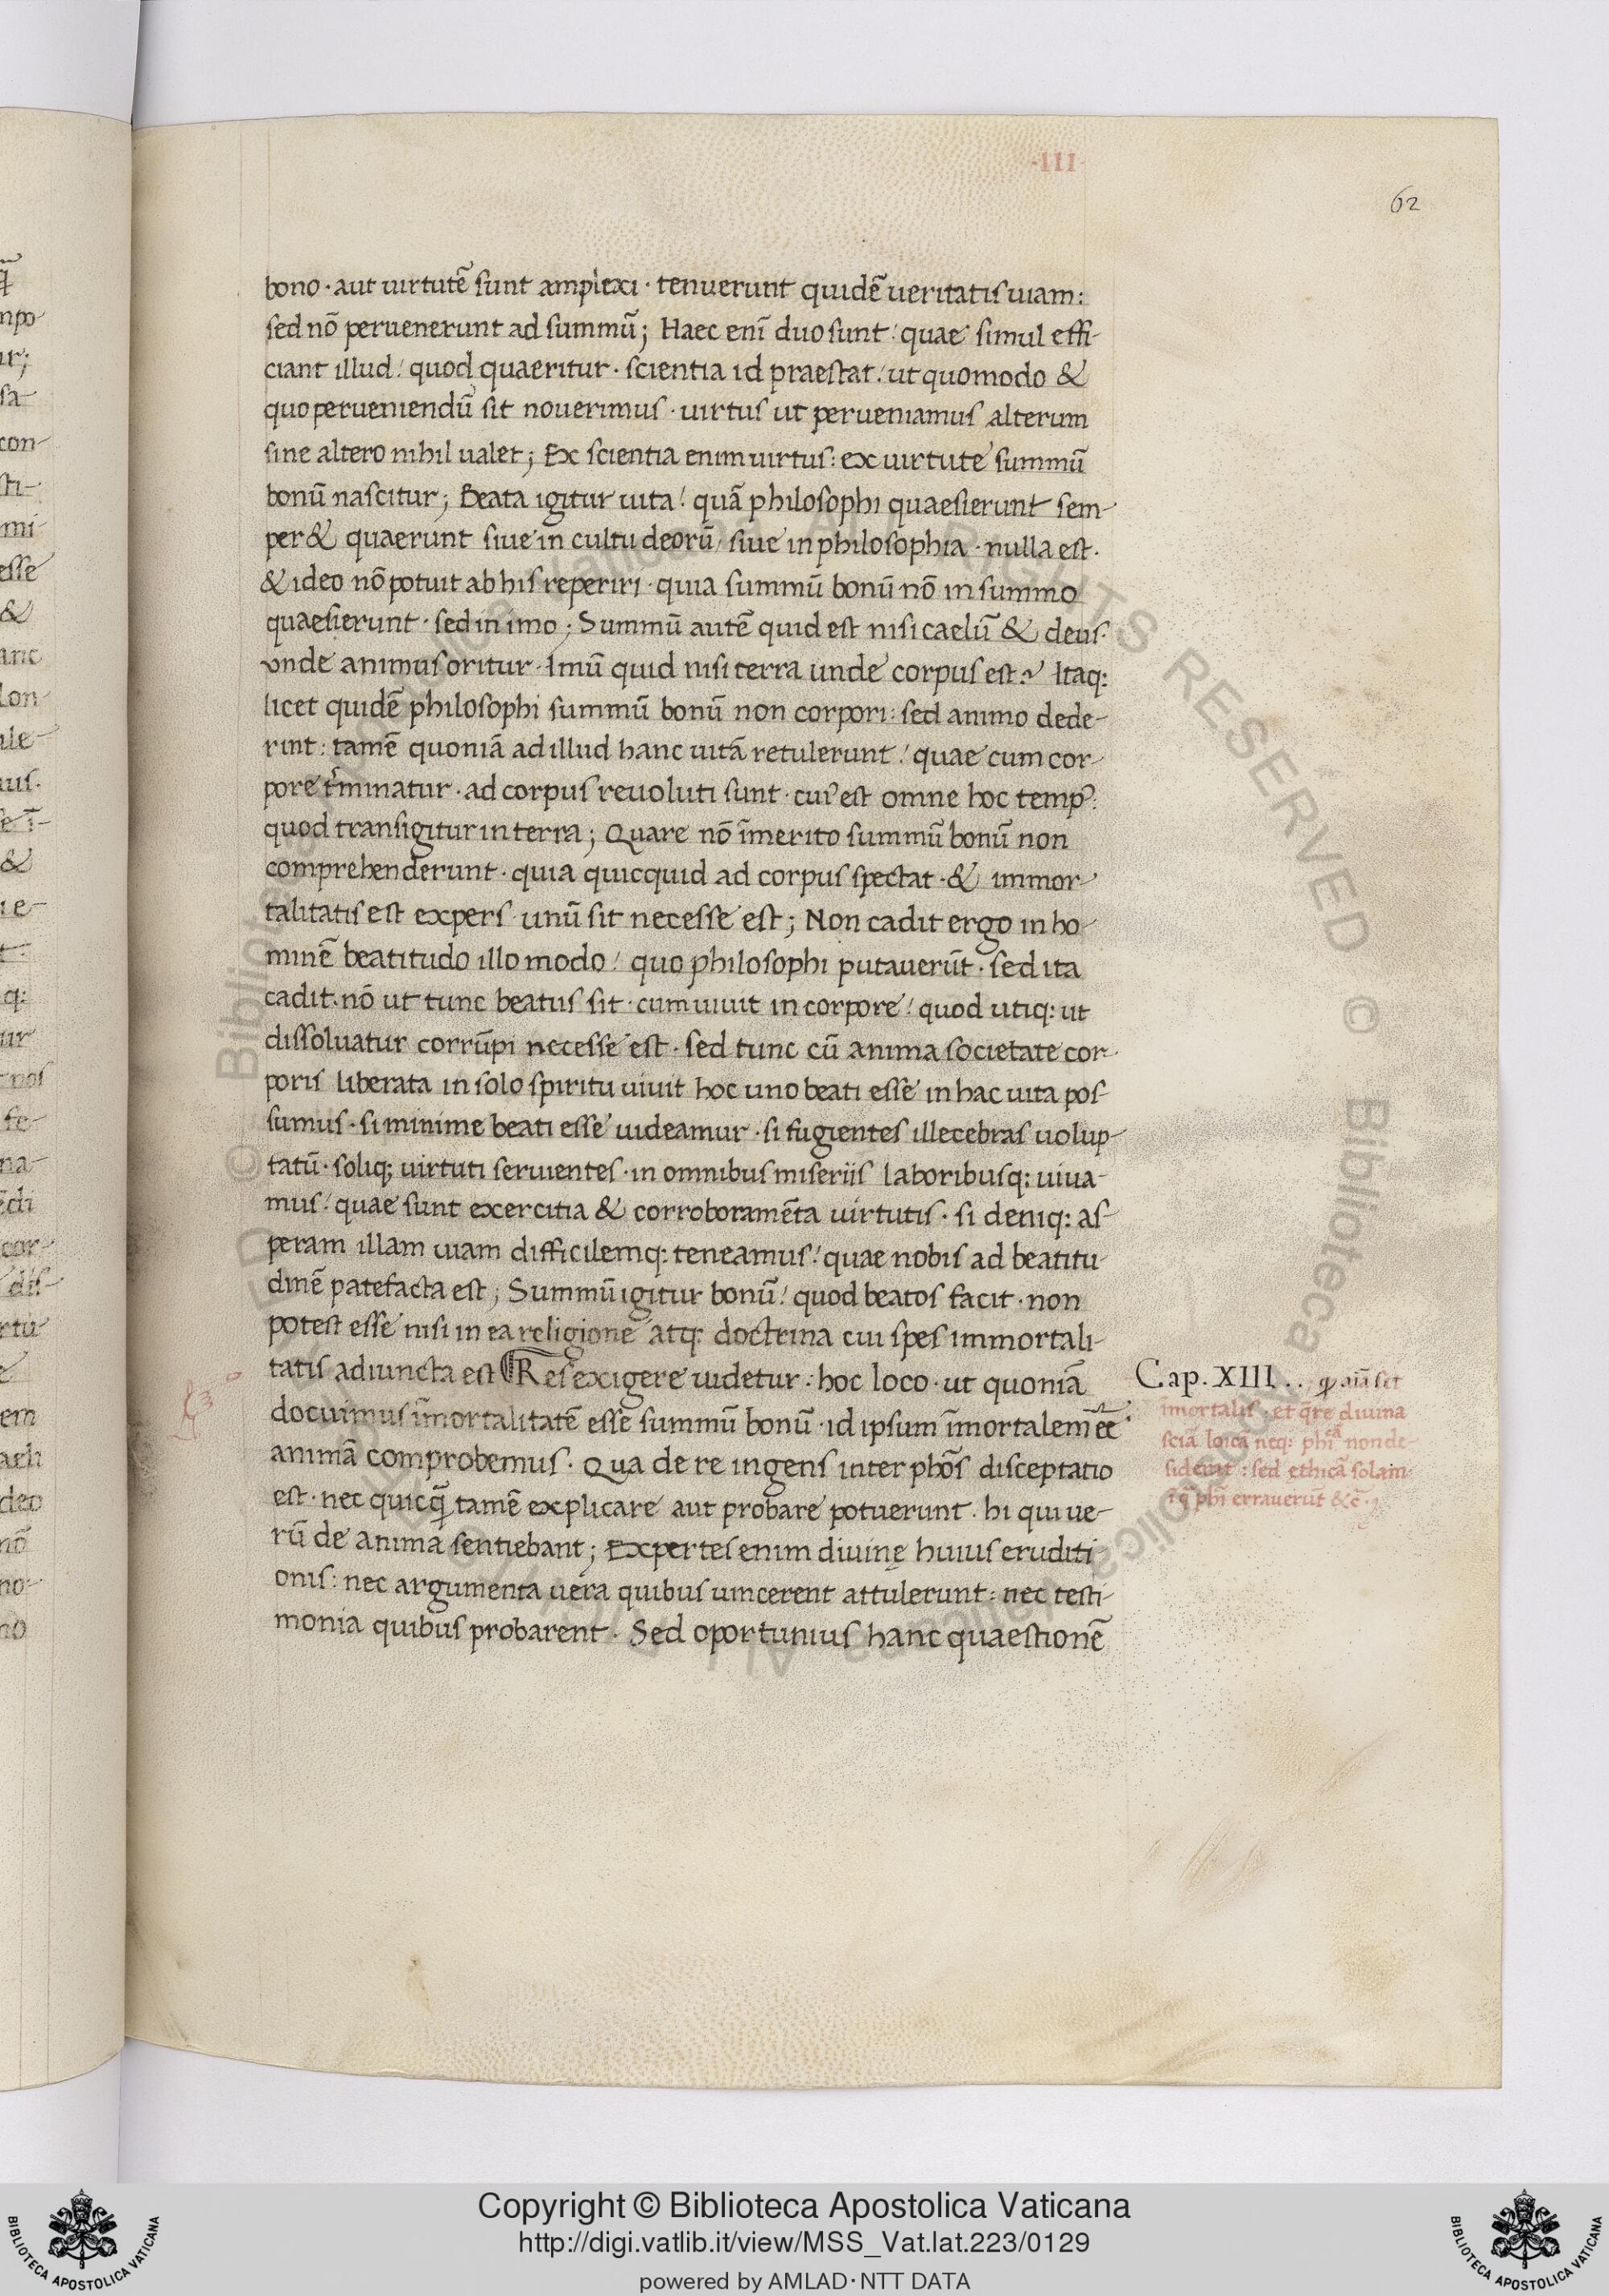 ·III·
62
bono · aut uirtutē sunt amplexi · tenuerunt quidē ueritatis uiam:
sed nō peruenerunt ad summū; Haec enī duo sunt / quae simul effi-
ciant illud / quod quaeritur · scientia id praestat / ut quomodo &
quo perueniendū sit nouerimus · uirtus ut perueniamus alterum
sine altero nihil ualet; Ex scientia enim uirtus: ex uirtute summū
bonū nascitur; Beata igitur uita / quā philosophi quaesierunt sem-
per & quaerunt siue in cultu deorū / siue in philosophia · nulla est ·
& ideo nō potuit ab his reperiri · quia summū bonū nō in summo
quaesierunt · sed in imo; Summū autē quid est nisi caelū & deus ·
vnde animus oritur · Imū quid nisi terra unde corpus est? Itaq:
licet quidē philosophi summū bonū non corpori: sed animo dede-
rint: tamē quoniā ad illud hanc uitā retulerunt / quae cum cor-
pore t̄minatur · ad corpus reuoluti sunt · cui᾽ est omne hoc temp᾽:
quod transigitur in terra; Quare nō īmerito summū bonū non
comprehenderunt · quia quicquid ad corpus spectat · & immor-
talitatis est expers · unū sit necesse est; Non cadit ergo in ho-
minē beatitudo illo modo / quo philosophi putauerūt · sed ita
cadit · nō ut tunc beatus sit · cum uiuit in corpore / quod utiq: ut
dissoluatur corrūpi necesse est · sed tunc cū anima societate cor-
poris liberata in solo spiritu uiuit hoc uno beati esse in hac uita pos-
sumus · si minime beati esse uideamur · si fugientes illecebras uolup-
tatū · soliq; uirtuti seruientes · in omnibus miseriis laboribusq: uiua-
mus / quae sunt exercitia & corroboramēta uirtutis · si deniq: as-
peram illam uiam difficilemq: teneamus / quae nobis ad beatitu-
dinē patefacta est; Summū igitur bonū / quod beatos facit · non
potest esse nisi in ea religione atq: doctrina cui spes immortali-
tatis adiuncta est Res exigere uidetur · hoc loco · ut quoniā
docuimus īmortalitatē esse summū bonū · id ipsum īmortalem ēē
animā comprobemus · Qua de re ingens inter phōs disceptatio
est · nec quicq̄ tamē explicare aut probare potuerunt · hi qui ue-
rū de anima sentiebant; Expertes enim diuinę huius eruditi
onis: nec argumenta uera quibus uincerent attulerunt: nec testi-
monia quibus probarent · Sed oportunius hanc quaestionē
Cap. XIII. . ꝙ aīa sit
īmortalis · et q̄re diuina
sciā loicā neq: phīcā non de-
siderat: sed ethicā solam
ī q̄ phī errauerūt &c̄ ·
Copyright © Biblioteca Apostolica Vaticana
http://digi.vatlib.it/view/MSS_Vat.lat.223/0129
powered by AMLAD·NTT DATA
BIBLIOTECA APOSTOLICA VATICANA
BIBLIOTECA APOSTOLICA VATICANA